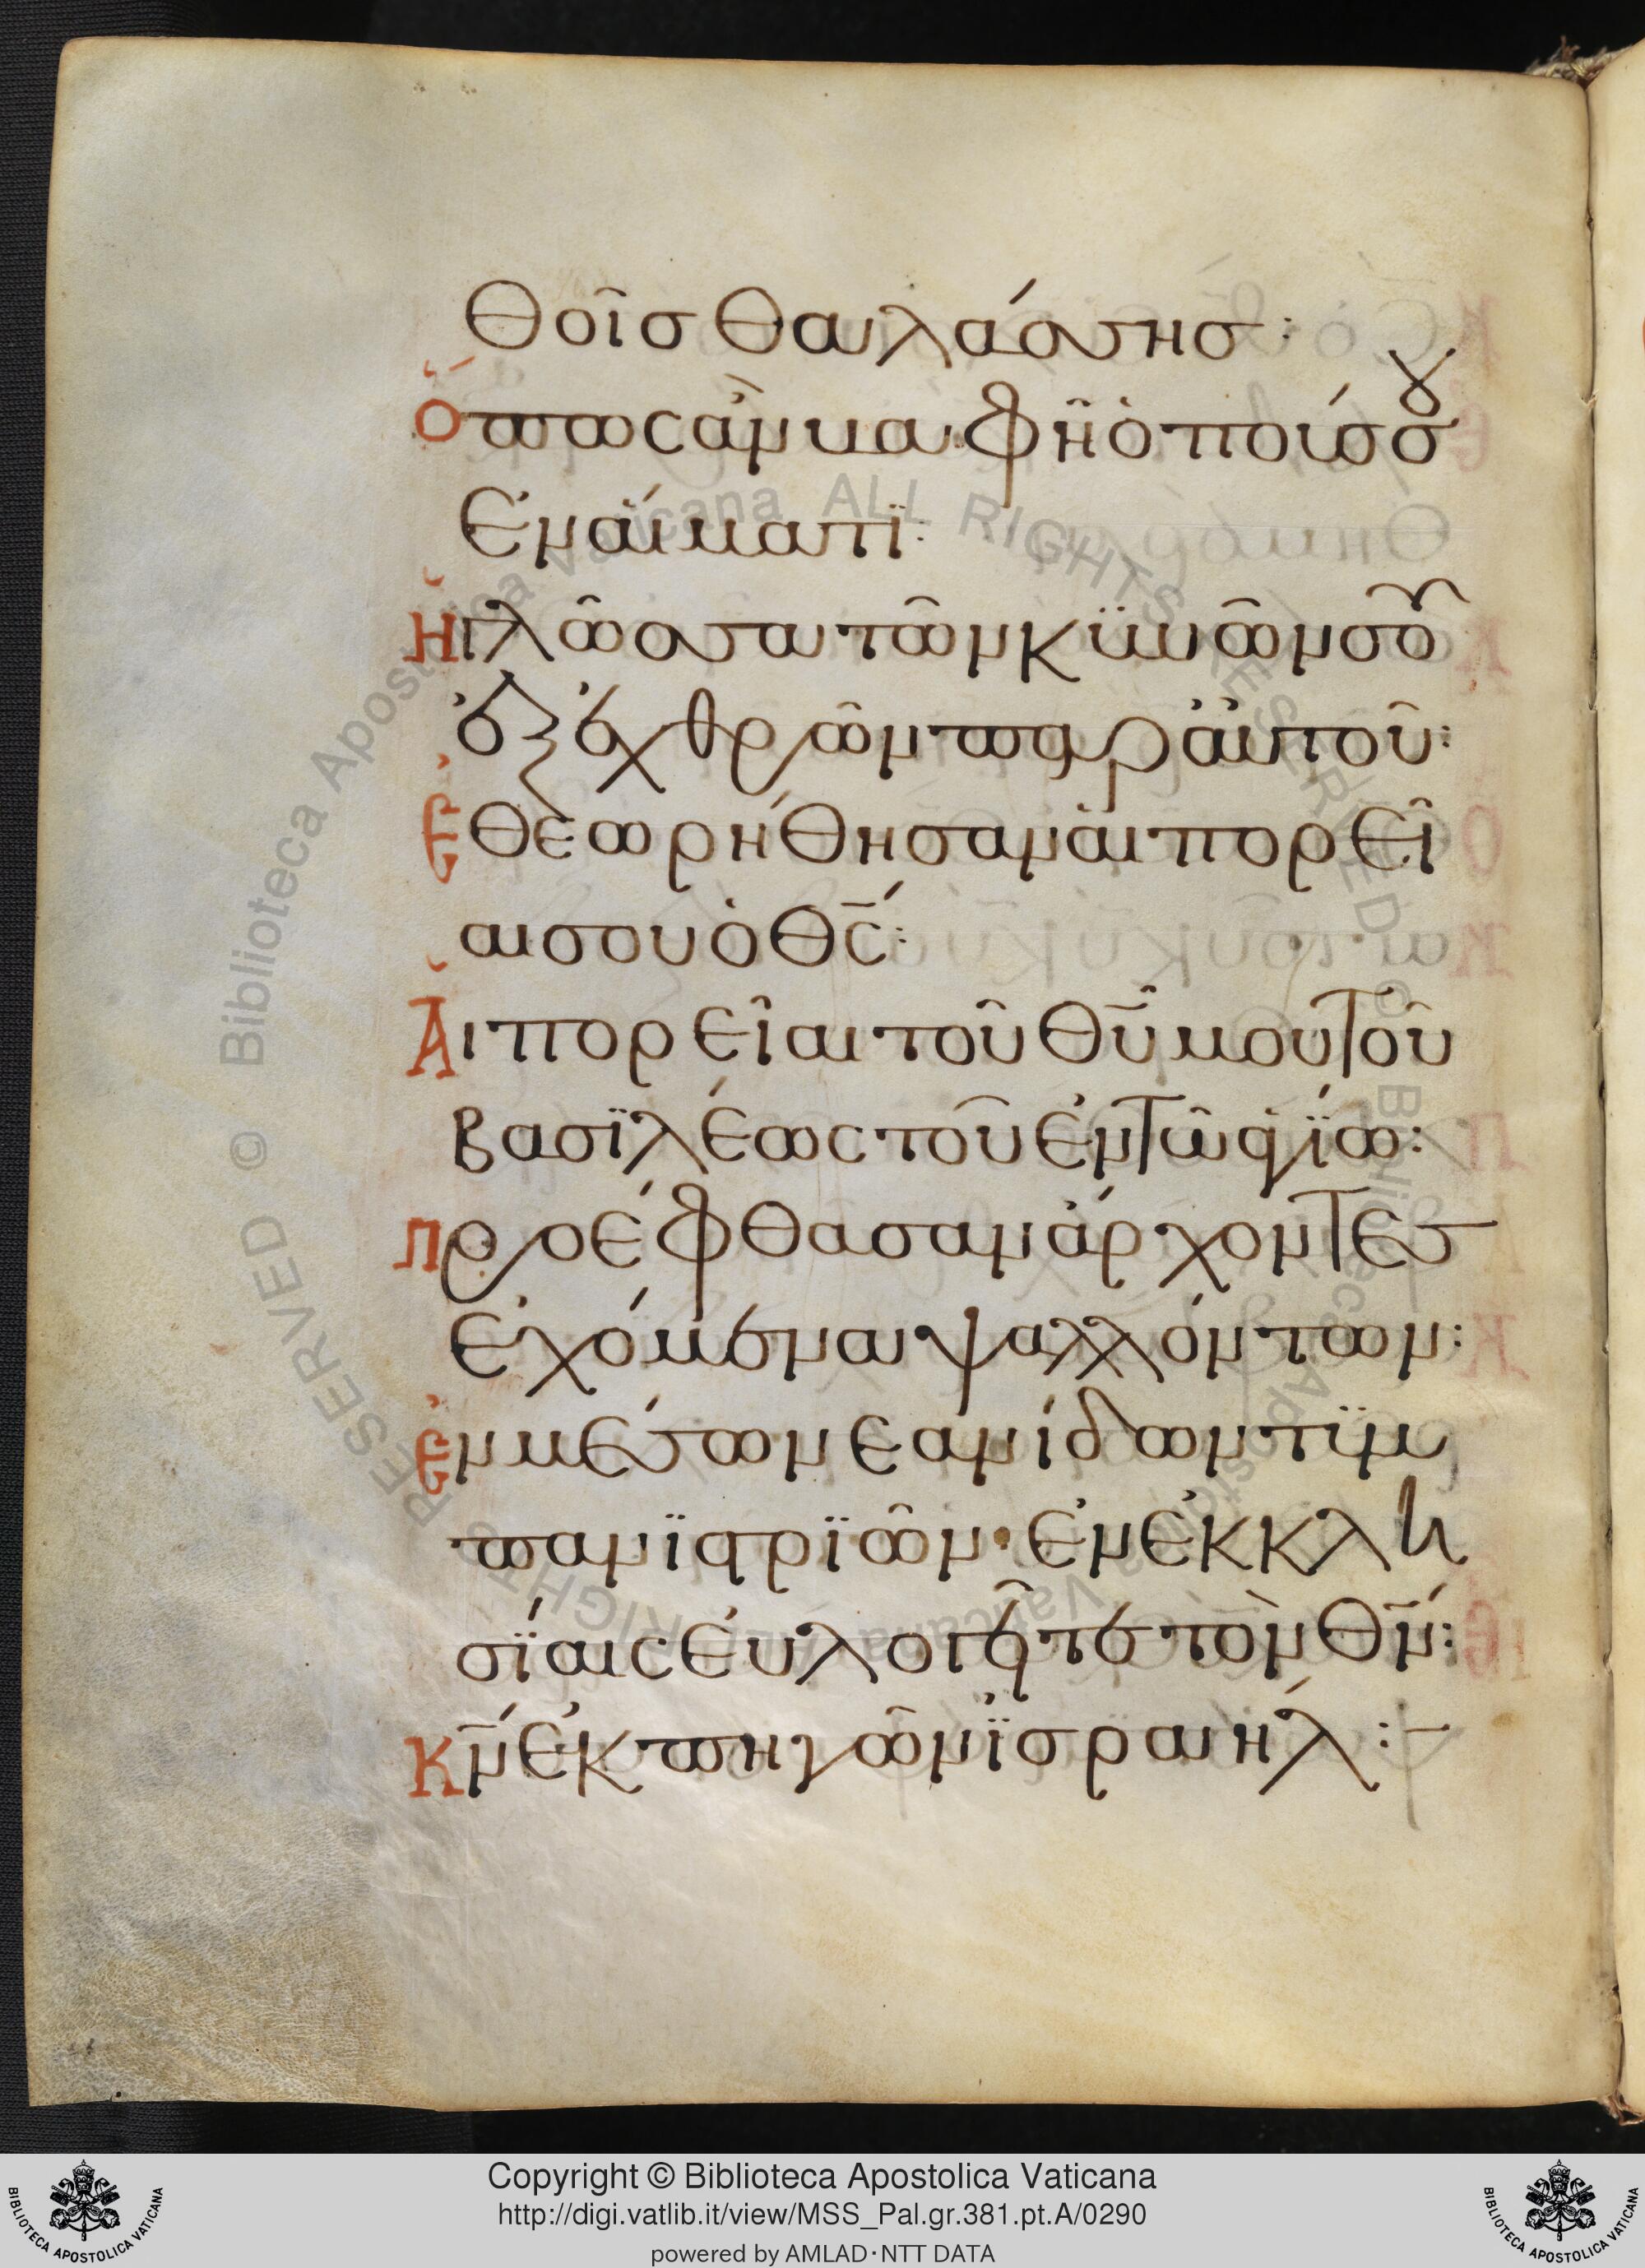 θοῖσ θαλάσσησ:
ὅπωσ ἂν βαφῆ ὁ πούσ σου
ἐν αἵματϊ:
Ἡ γλῶσσα τῶν κϋνῶν σοῦ
ἐξ ἐχθρῶν παρ αὐτοῦ:
Ἐθεωρήθησαν αἱ πορεῖ
αι σου ὁ θ̅ς̅:
Ἁι πορεῖαι τοῦ θ̅υ̅ μου τοῦ
βασϊλέως τοῦ ἐν τῶ ἁγΐω:
προέφθασαν ἄρχοντεσ
ἐχόμεναι ψαλλόντων:
ἐν μέσω νεανίδων τϋμ
πανϊστρϊῶν· ἐν ἐκκλη
σΐαις ἐυλογεῖτε τὸν θ̅ν̅:
κ̅ν̅ ἐκ πηγῶν ϊσραήλ:
Copyright © Biblioteca Apostolica Vaticana
http://digi.vatlib.it/view/MSS_Pal.gr.381.pt.A/0290
powered by AMLAD·NTT DATA
BIBLIOTECA APOSTOLICA VATICANA
BIBLIOTECA APOSTOLICA VATICANA